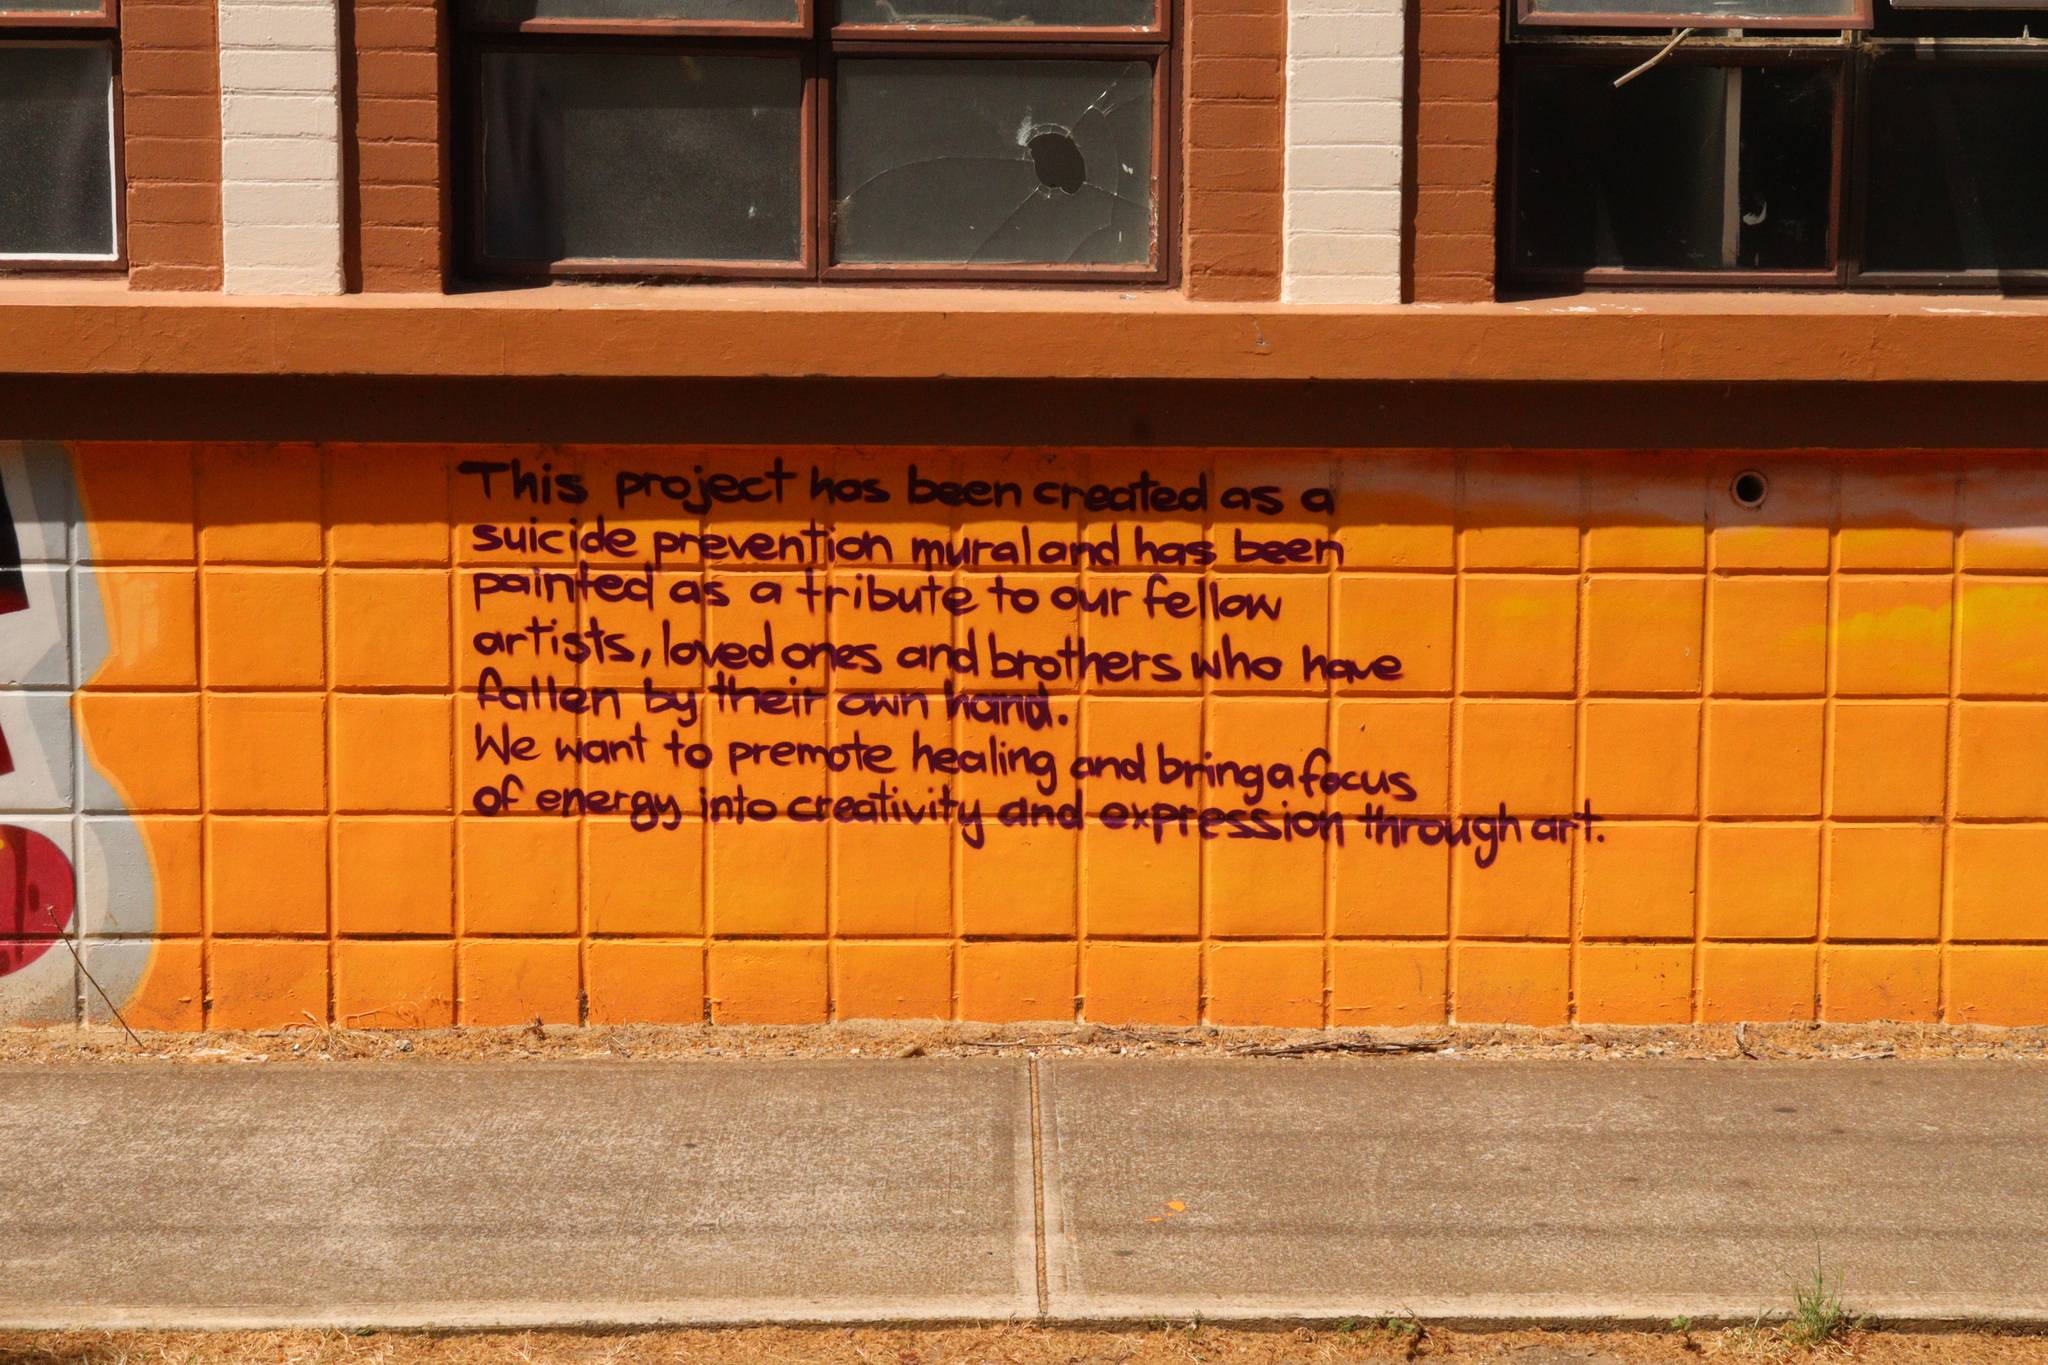 This project has been created as a
suicide prevention mural and has been
painted as a tribute to our fellow
artists, loved ones and brothers who have
fallen by their own hand.
We want to premote healing and bring a focus
of energy into creativity and expression through art.